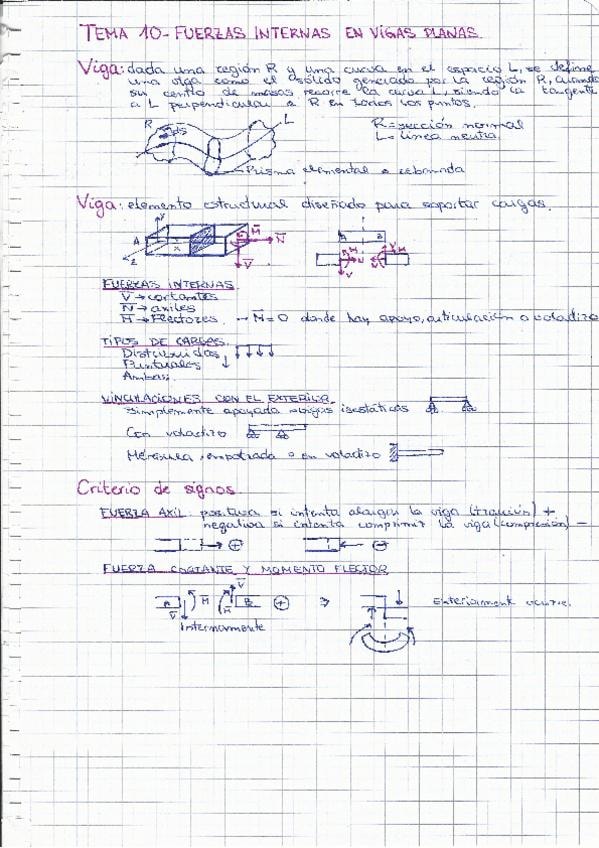 TEMA 10 - FUERZAS INTERNAS EN VIGAS PLANAS.
Viga: dada una región R y una curva en el espacio L, se define
una viga como el sólido generado por la región R, cuando
su centro de masas recorre la curva L, siendo la tangente
a L perpendicular a R en todos los puntos.
R L
ds
R = sección normal
L = línea neutra.
Prisma elemental o rebanada
Viga: elemento estructural diseñado para soportar cargas.
y
A x M N
z V
A B
M N N M
V V
FUERZAS INTERNAS
V → cortantes
N → axiles
M → Flectores. → M = 0 donde hay apoyo, articulación o voladizo
TIPOS DE CARGAS.
Distribuidas
Puntuales ↓
Ambas.
VINCULACIONES CON EL EXTERIOR.
Simplemente apoyada vigas isostáticas
Con voladizo
Ménsula, empotrada o en voladizo
Criterio de signos.
FUERZA AXIL: positiva si intenta alargar la viga (tracción) +
negativa si intenta comprimir la viga (compresión) -
→ + ← -
FUERZA CORTANTE Y MOMENTO FLECTOR
A V M M V B + ⇒
internamente
Exteriormente